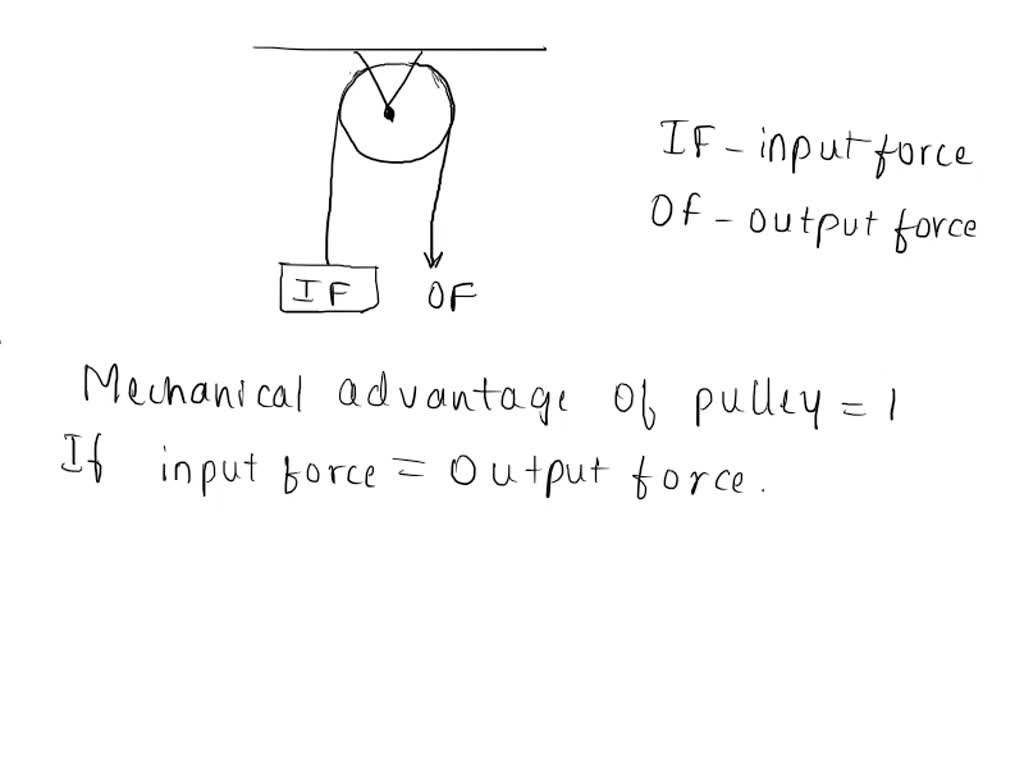 IF - input force
OF - output force
IF OF
Mechanical advantage of pulley = 1
If input force = output force.